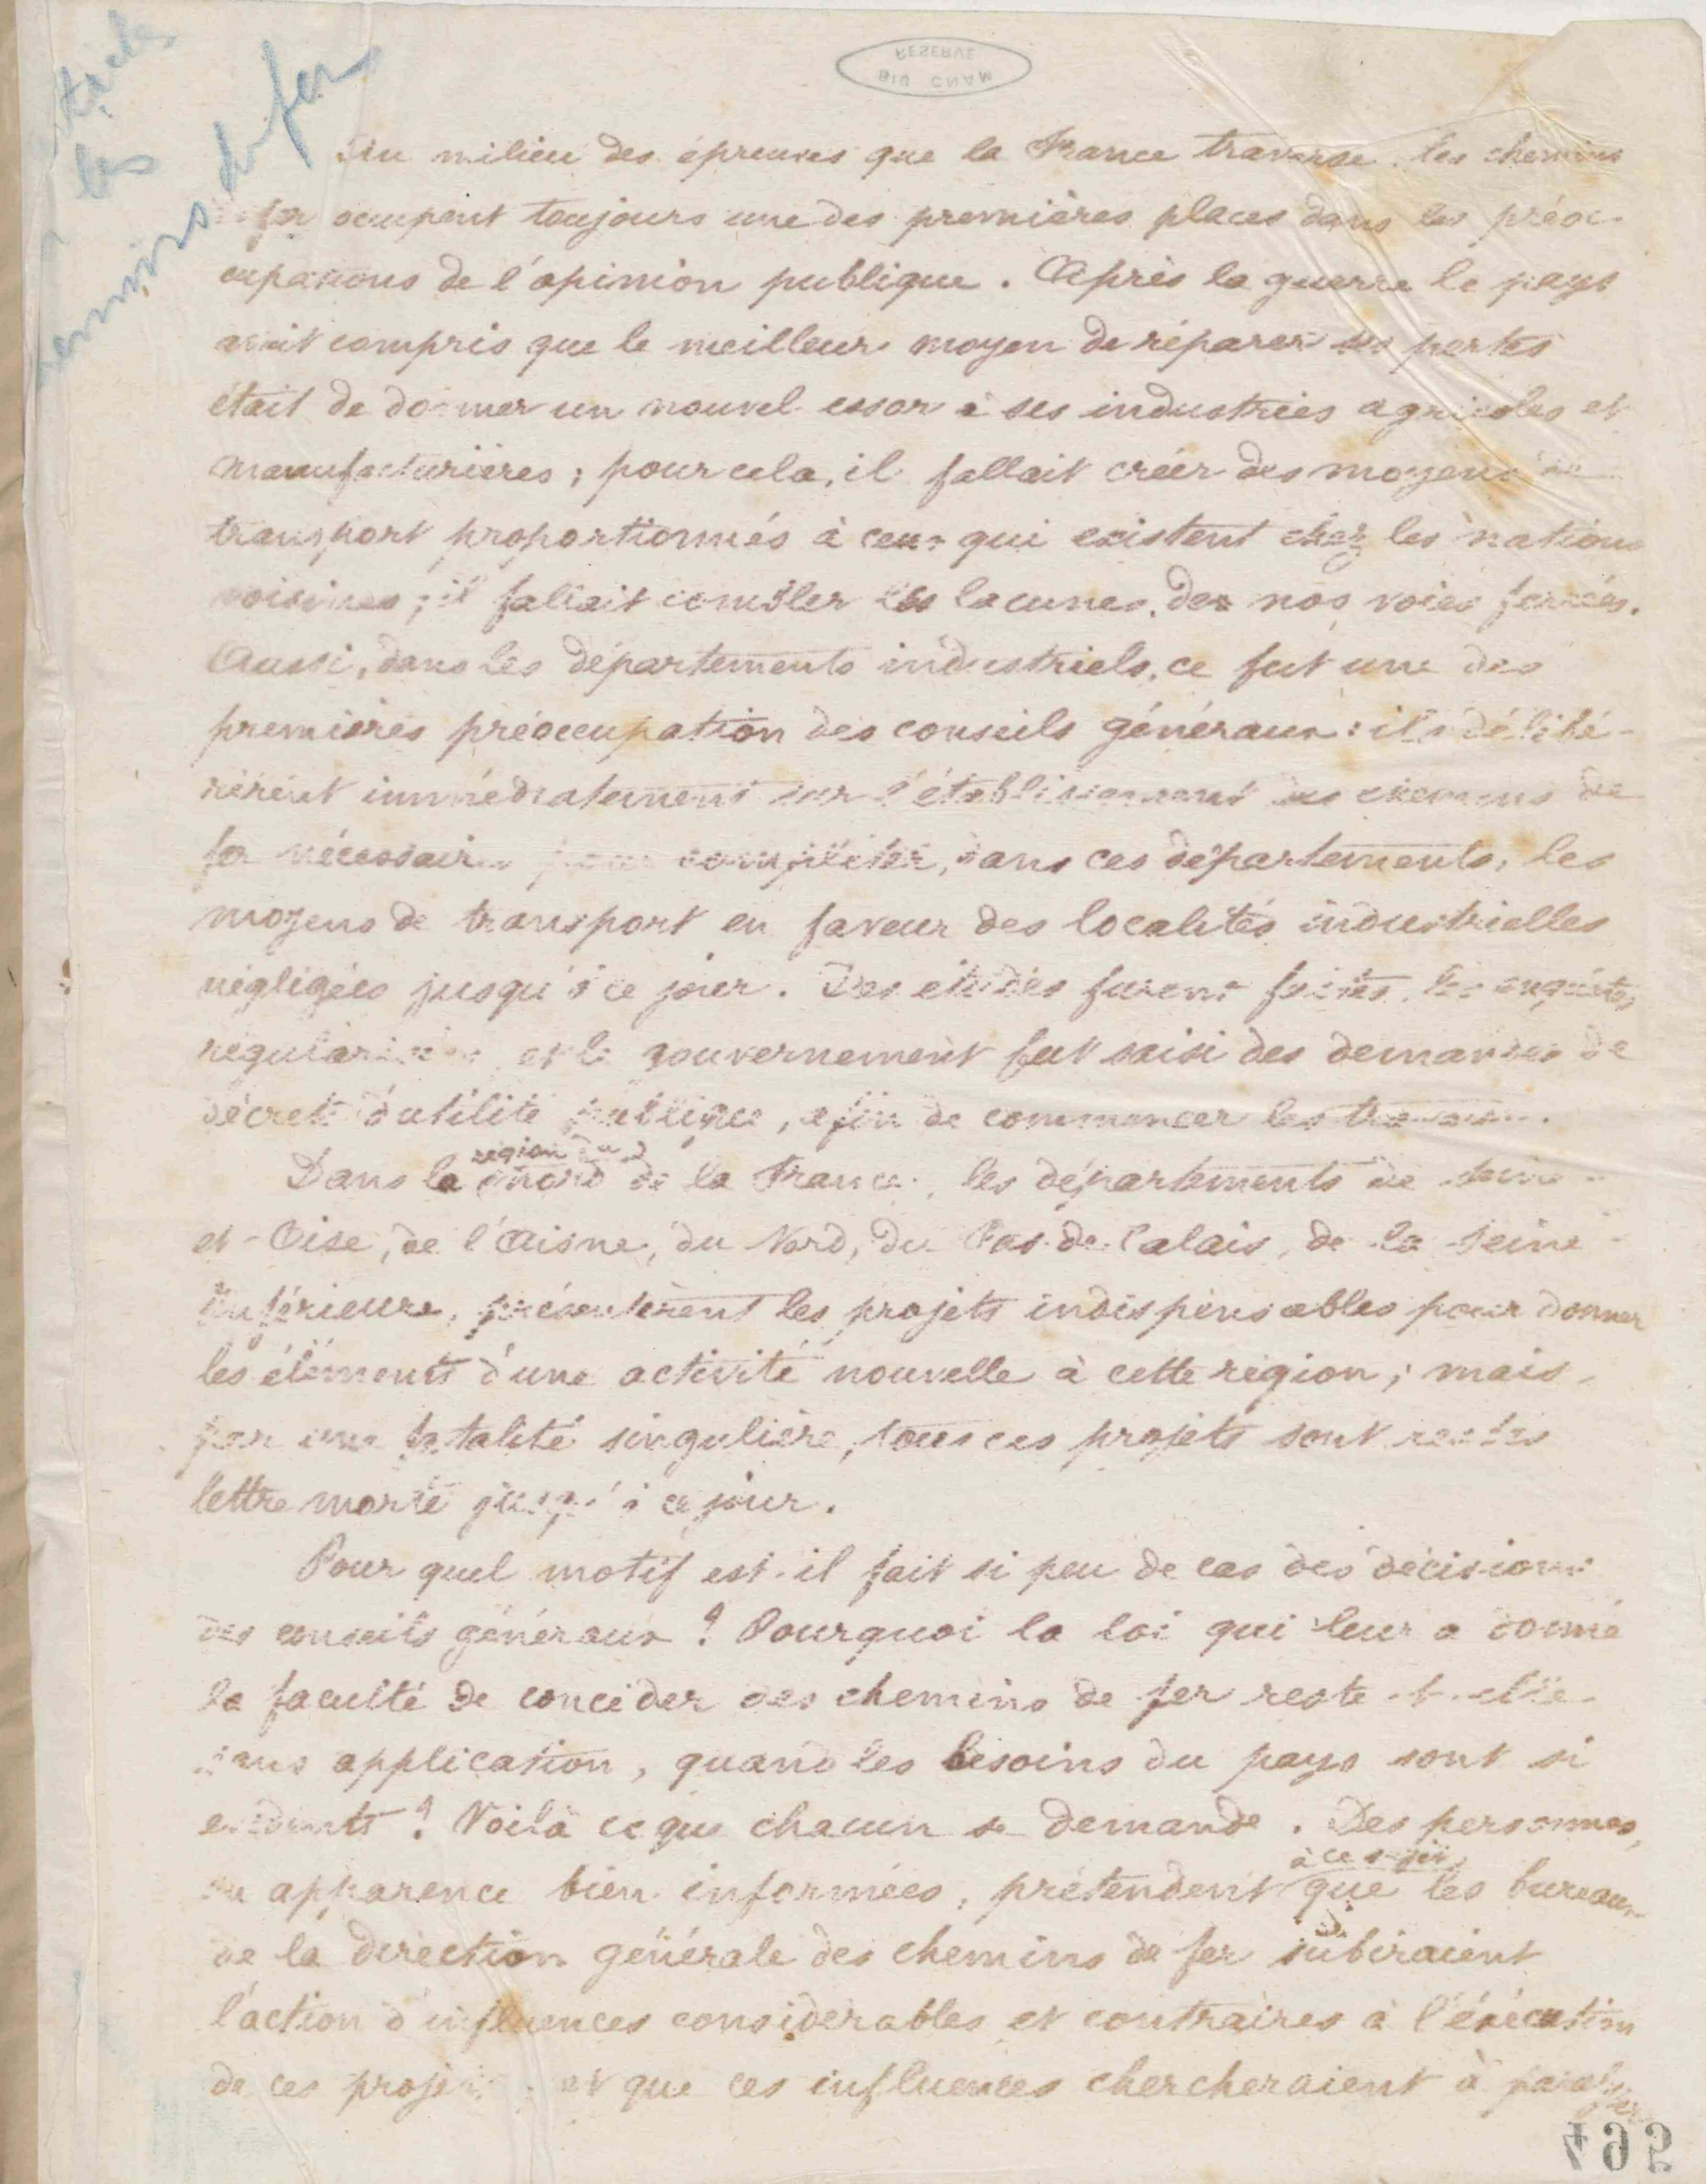 article
les
chemins de fer
RESERVE
BIU CNAM
Au milieu des épreuves que la France traverse, les chemins
de fer occupent toujours une des premières places dans les préoc-
cupations de l'opinion publique. Après la guerre le pays
avait compris que le meilleur moyen de réparer ses pertes
était de donner un nouvel essor à ses industries agricoles et
manufacturières ; pour cela, il fallait créer des moyens de
transport proportionnés à ceux qui existent chez les nations
voisines ; il fallait combler les lacunes de nos voies ferrées.
Aussi, dans les départements industriels, ce fut une des
premières préoccupation des conseils généraux : ils délibé-
rèrent immédiatement sur l'établissement des chemins de
fer nécessaires pour compléter, dans ces départements, les
moyens de transport en faveur des localités industrielles
négligées jusqu'à ce jour. Des études furent faites, les enquêtes
régularisées et le gouvernement fut saisi des demandes de
décrets d'utilité publique, afin de commencer les travaux.
région du
Dans la nord de la France, les départements de Seine-
et-Oise, de l'Aisne, du Nord, du Pas-de-Calais, de la Seine-
Inférieure, présentèrent les projets indispensables pour donner
les éléments d'une activité nouvelle à cette région ; mais,
par une fatalité singulière, tous ces projets sont restés
lettre morte jusqu'à ce jour.
Pour quel motif est-il fait si peu de cas des décisions
des conseils généraux ? Pourquoi la loi qui leur a donné
la faculté de concéder des chemins de fer reste-t-elle
sans application, quand les besoins du pays sont si
évidents ? Voilà ce que chacun se demande. Des personnes,
à ce sujet
en apparence bien informées, prétendent que les bureaux
de la direction générale des chemins de fer subiraient
l'action d'influences considérables et contraires à l'exécution
de ces projets, et que ces influences chercheraient à paralyser
5964